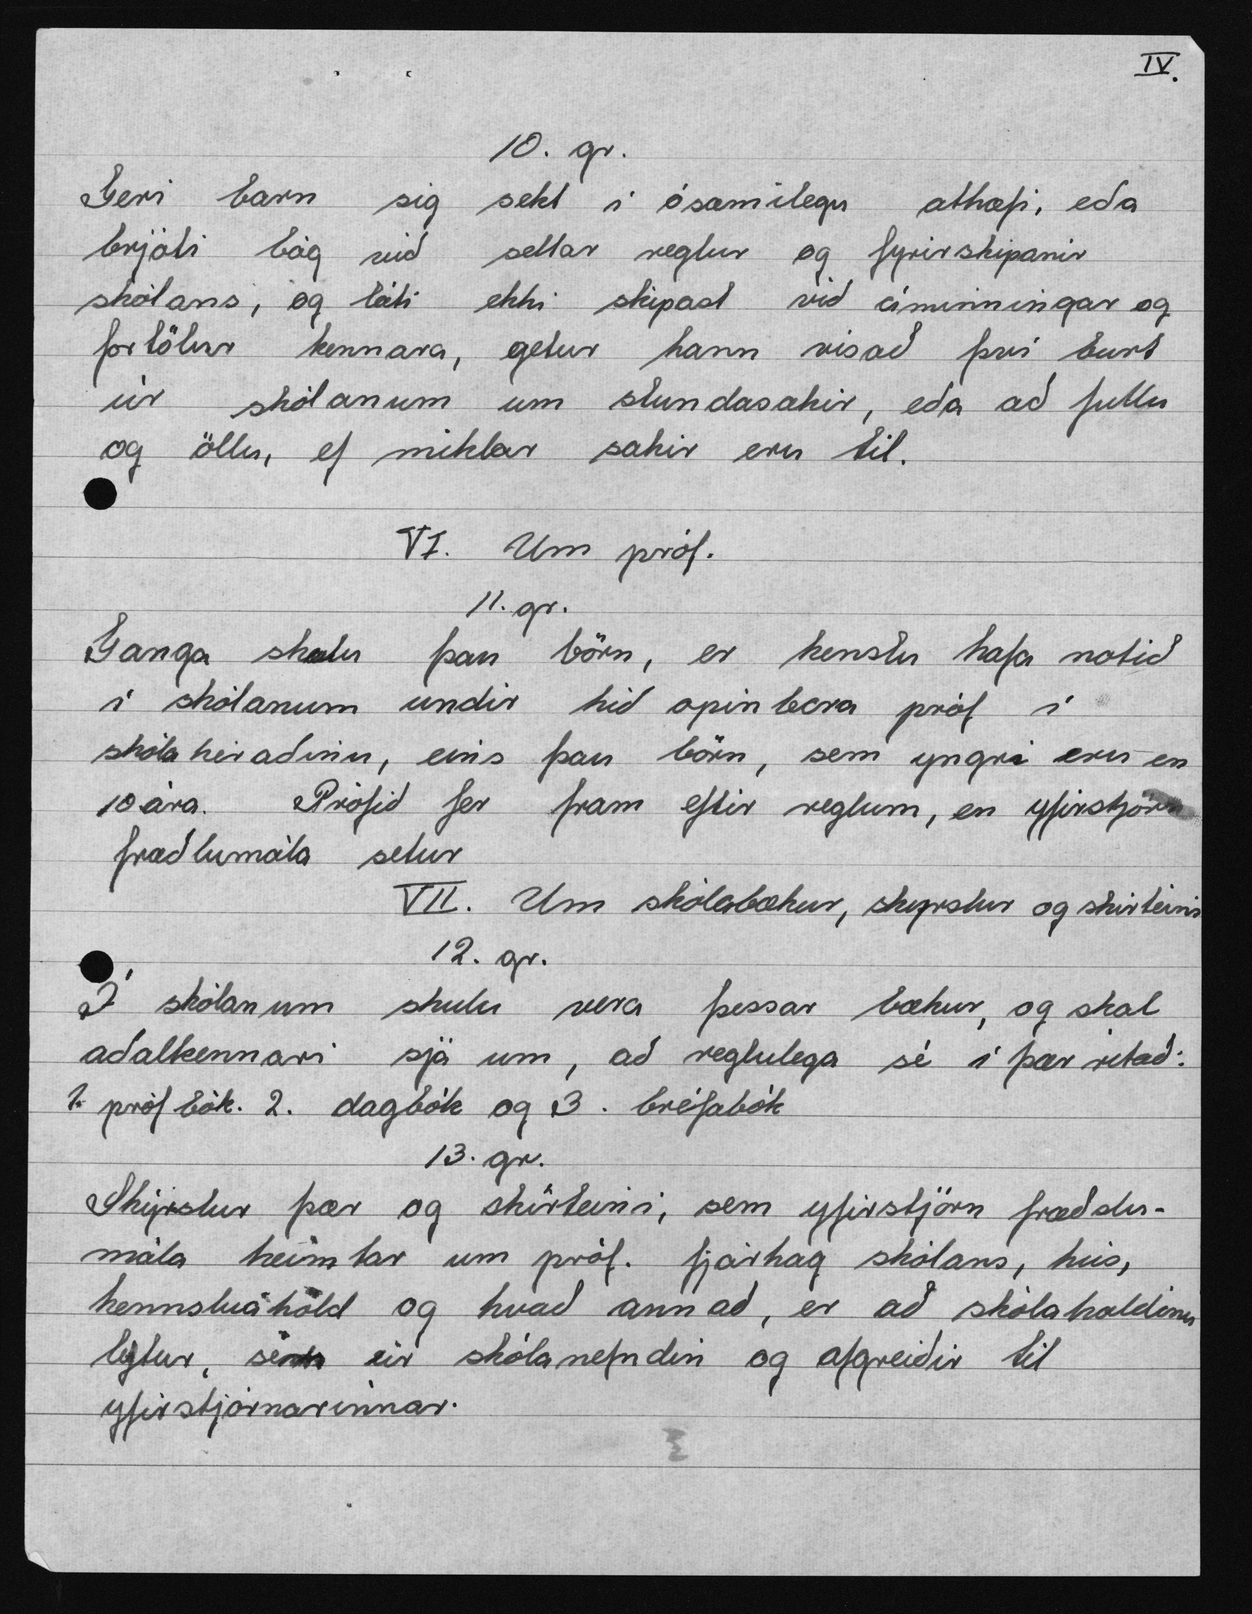 IV.
10. gr.
Geri barn sig sekt í ósæmilegu athæfi, eða
brjóti bág við settar reglur og fyrirskipanir
skólans, og láti ekki skipast við áminningar og
fortölur kennara, getur hann vísað því burt
úr skólanum um stundasakir, eða að fullu
og öllu, ef miklar sakir eru til.
VI. Um próf.
11. gr.
Ganga skulu þau börn, er kenslu hafa notið
í skólanum undir hið opinbera próf í
skólahéraðinu, eins þau börn, sem yngri eru en
10 ára. Prófið fer fram eftir reglum, en yfirstjórn
fræðlumála setur
VII. Um skólabækur, skyrslur og skirteini
12. gr.
Í skólanum skulu vera þessar bækur, og skal
aðalkennari sjá um, að reglulega sé í þær ritað:
1. próf bók. 2. dagbók og 3. bréfabók
13. gr.
Skýrslur þær og skírteini, sem yfirstjörn fræðslu-
mála heimtar um próf. fjárhag skólans, hús,
kennsluáhöld og hvað annað, er að skólahaldinu
lytur, úr skólanefndin og afgreiðir til
yfirstjórnarinnar.